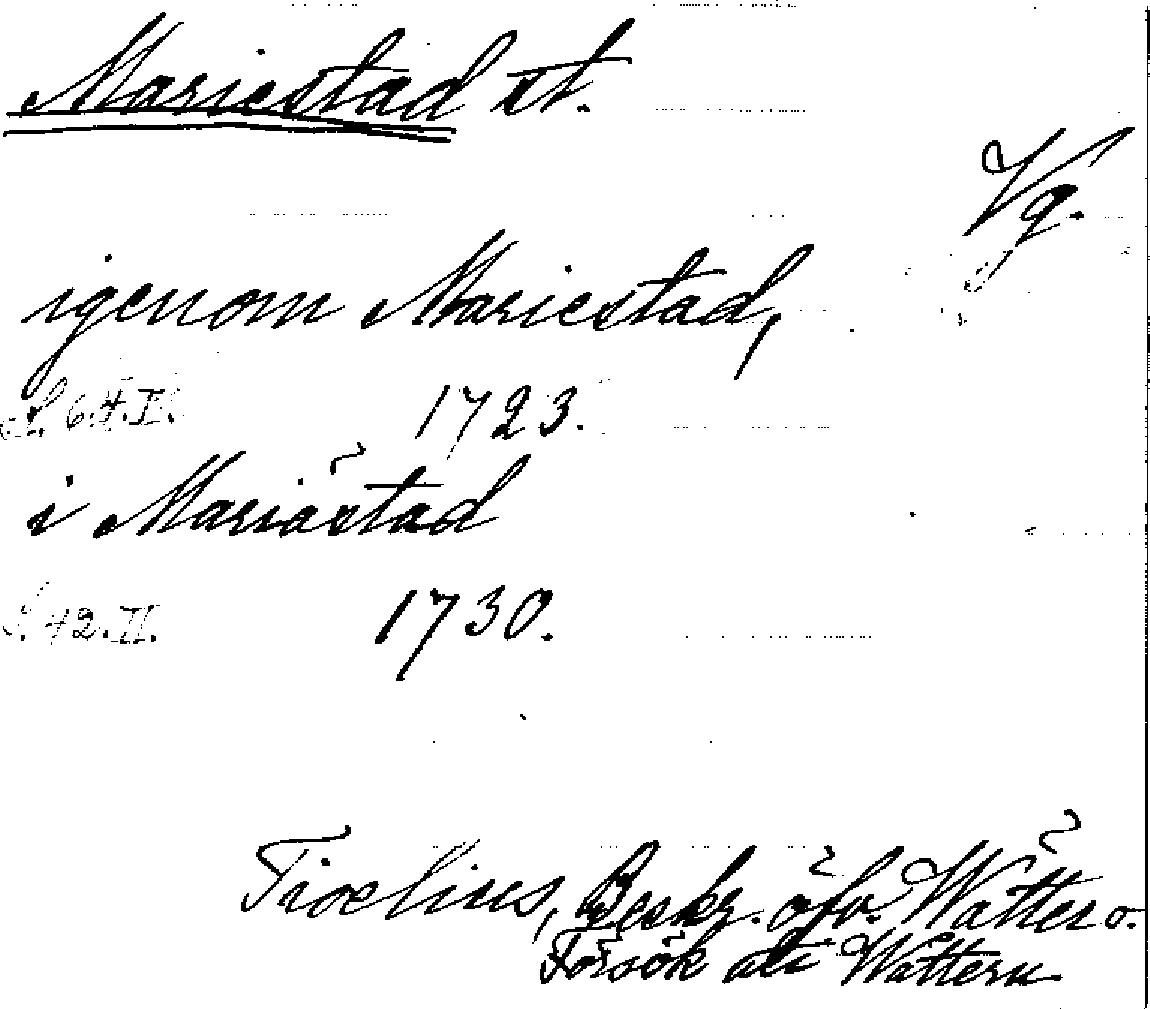 Mariestad st.
Vg.
igenom Mariestad,
S. 64. II. 1723.
i Mariästad
S. 42. II. 1730.
Tiselius, Beskr. öfv. Wätter o.
Försök uti Wättern